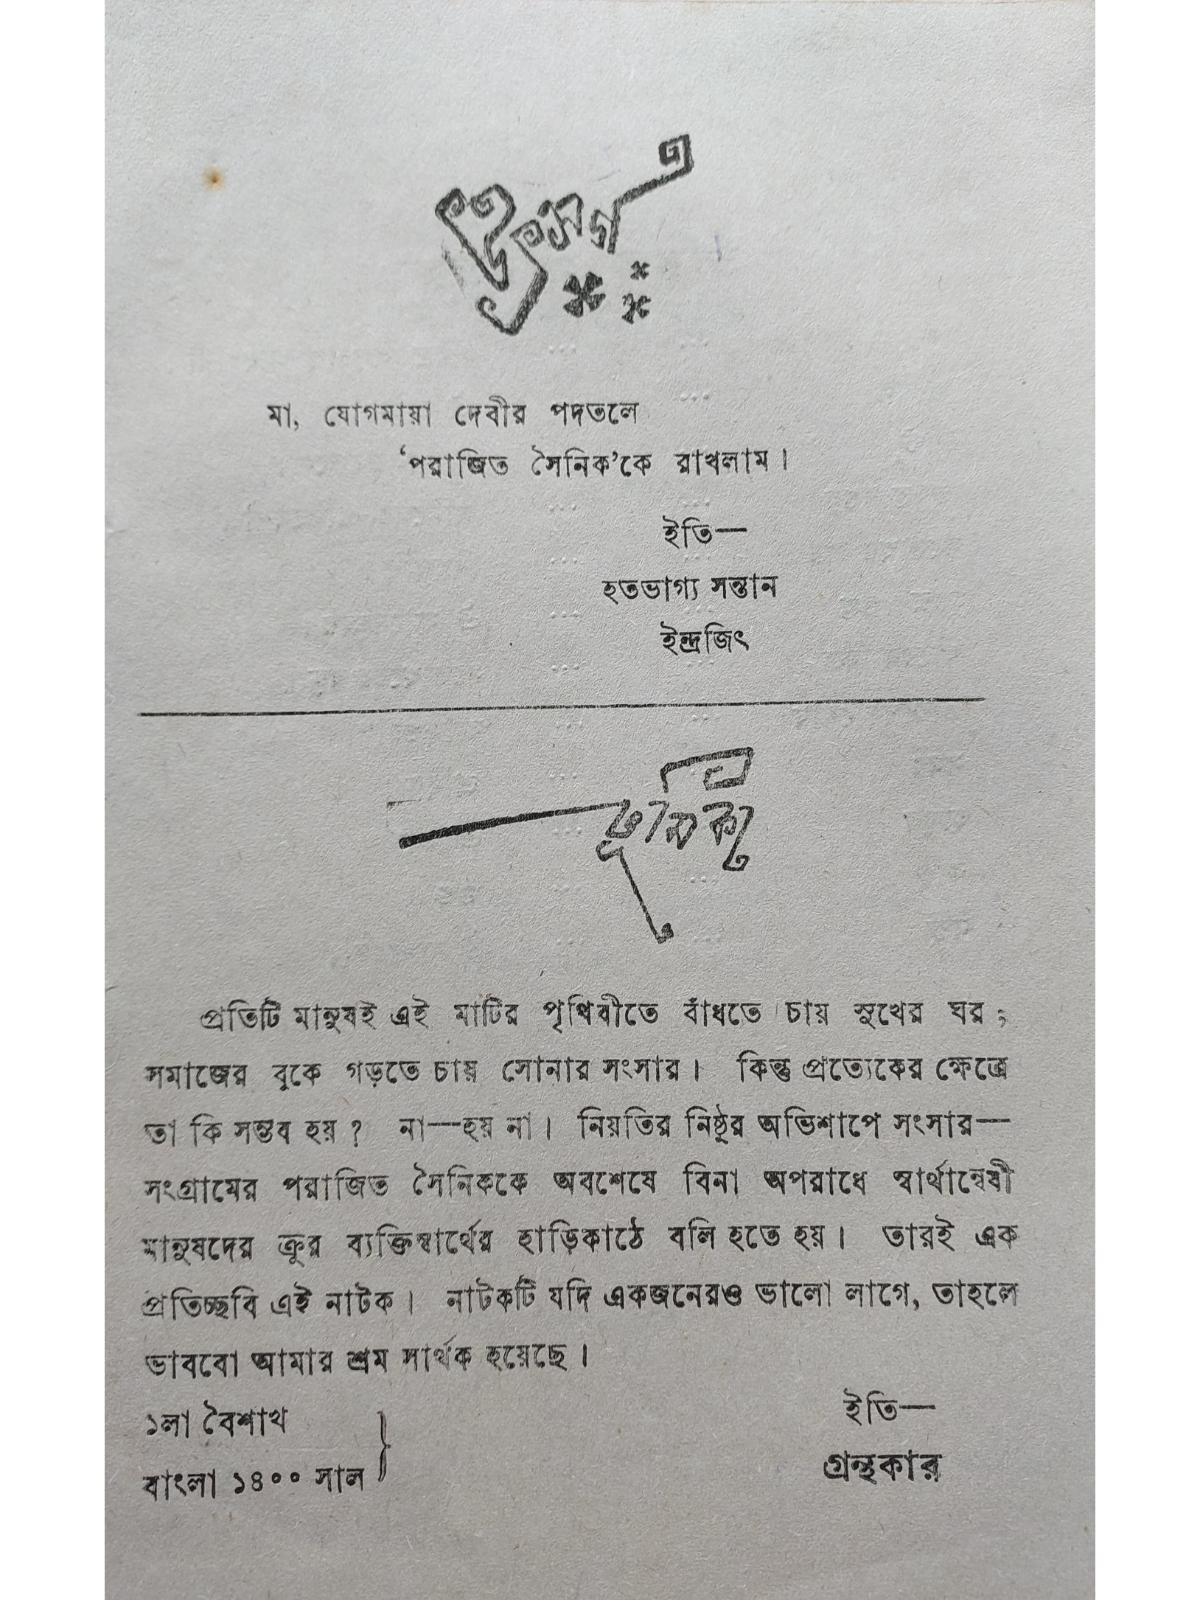 উৎসর্গ
মা, যোগমায়া দেবীর পদতলে
‘পরাজিত সৈনিক’কে রাখলাম।
ইতি—
হতভাগ্য সন্তান
ইন্দ্রজিৎ
ভূমিকা
প্রতিটি মানুষই এই মাটির পৃথিবীতে বাঁধতে চায় সুখের ঘর ;
সমাজের বুকে গড়তে চায় সোনার সংসার। কিন্তু প্রত্যেকের ক্ষেত্রে
তা কি সম্ভব হয় ? না—হয় না। নিয়তির নিষ্ঠুর অভিশাপে সংসার—
সংগ্রামের পরাজিত সৈনিককে অবশেষে বিনা অপরাধে স্বার্থান্বেষী
মানুষদের ক্রুর ব্যক্তিস্বার্থের হাড়িকাঠে বলি হতে হয়। তারই এক
প্রতিচ্ছবি এই নাটক। নাটকটি যদি একজনেরও ভালো লাগে, তাহলে
ভাববো আমার শ্রম সার্থক হয়েছে।
১লা বৈশাখ
বাংলা ১৪০০ সাল
ইতি—
গ্রন্থকার